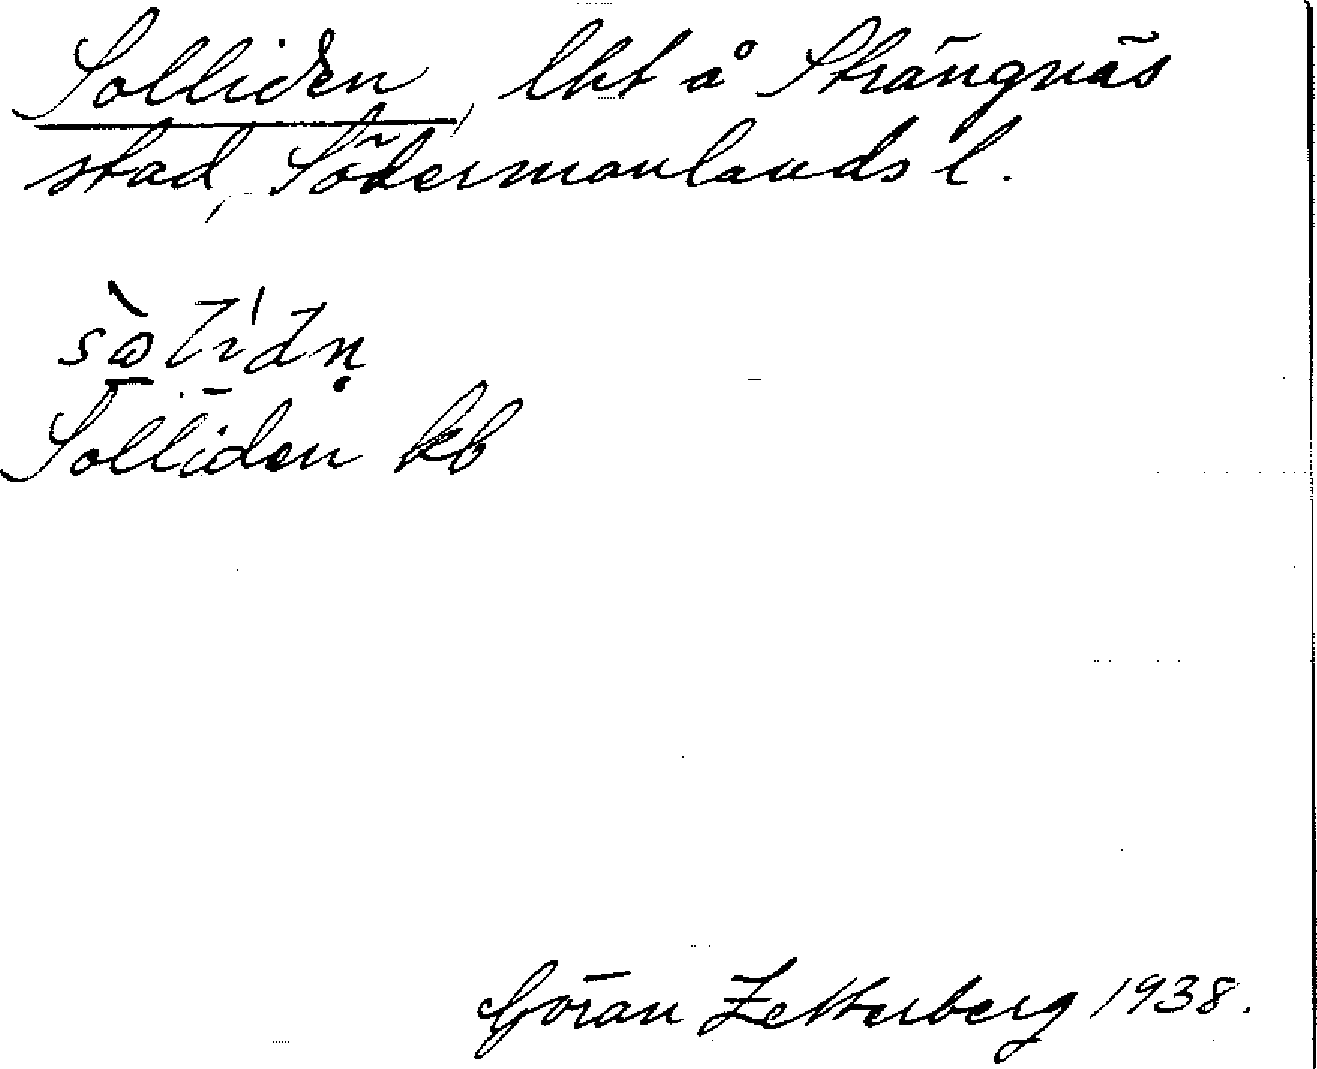 Solliden, lht å Strängnäs
stad, Södermanlands l.
Solliden kb
Göran Zetterberg 1938.